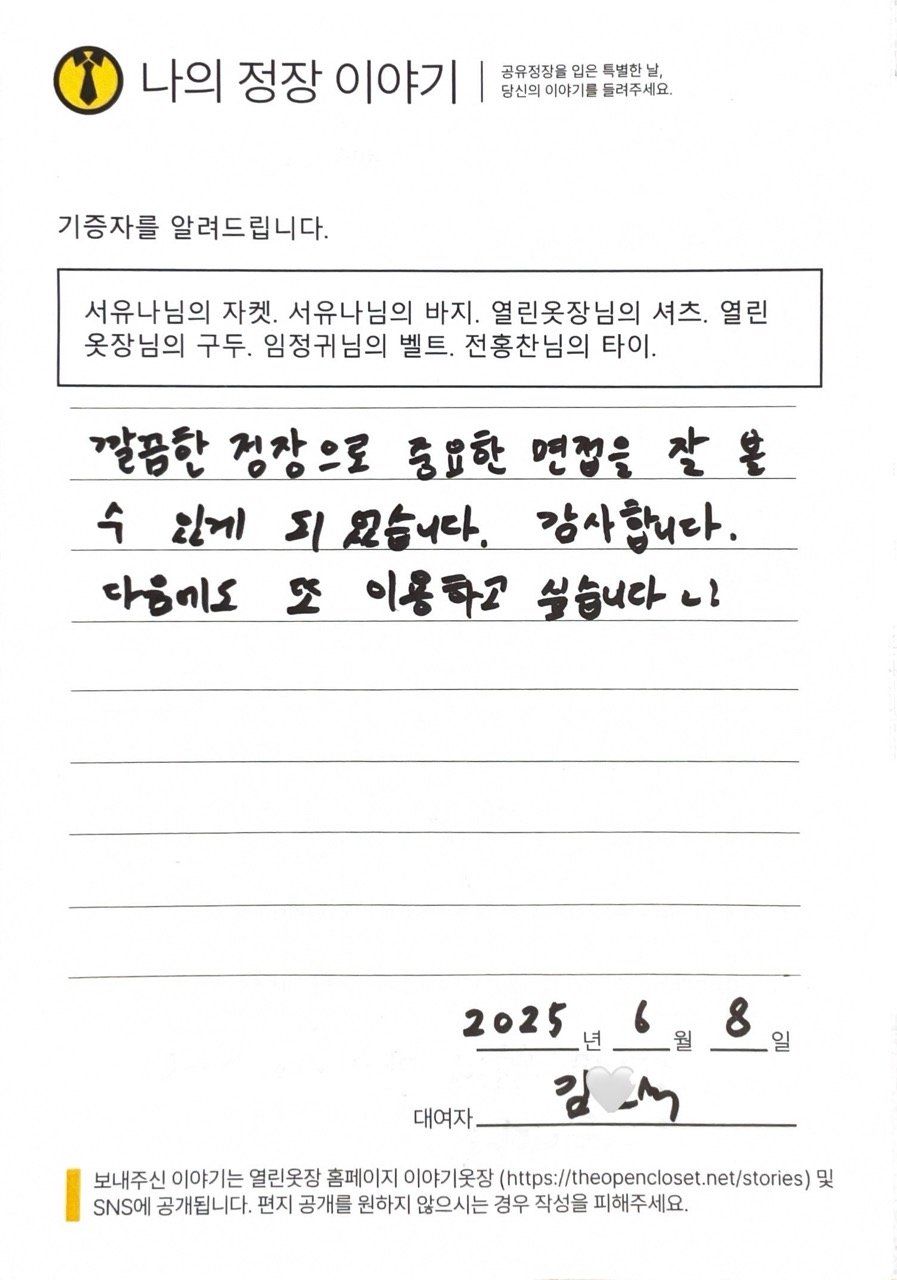 나의 정장 이야기
공유정장을 입은 특별한 날,
당신의 이야기를 들려주세요.
기증자를 알려드립니다.
서유나님의 자켓. 서유나님의 바지. 열린옷장님의 셔츠. 열린
옷장님의 구두. 임정귀님의 벨트. 전홍찬님의 타이.
깔끔한 정장으로 중요한 면접을 잘 볼
수 있게 되었습니다. 감사합니다.
다음에도 또 이용하고 싶습니다
2025년 6월 8일
대여자 김
보내주신 이야기는 열린옷장 홈페이지 이야기옷장 (https://theopencloset.net/stories) 및
SNS에 공개됩니다. 편지 공개를 원하지 않으시는 경우 작성을 피해주세요.